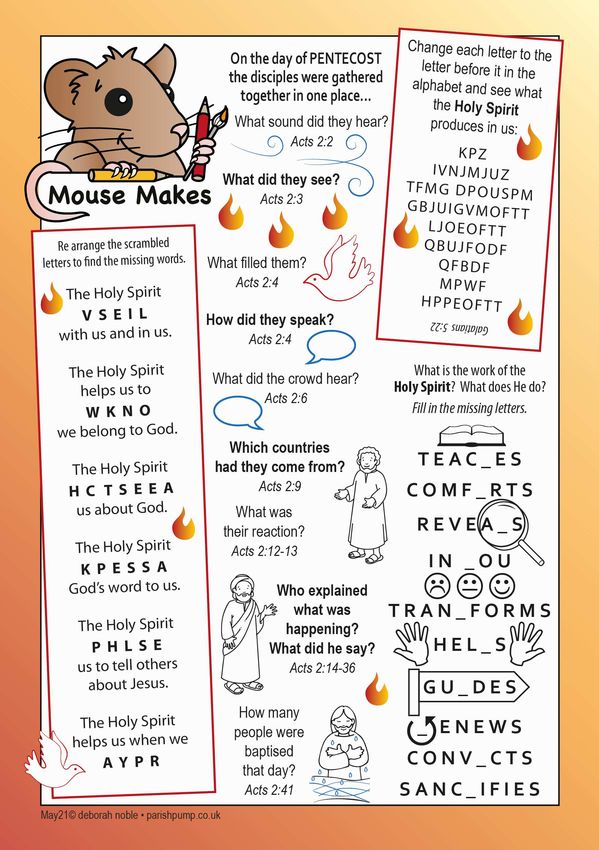 Mouse Makes
On the day of PENTECOST
the disciples were gathered
together in one place...
What sound did they hear?
Acts 2:2
What did they see?
Acts 2:3
What filled them?
Acts 2:4
How did they speak?
Acts 2:4
What did the crowd hear?
Acts 2:6
Which countries
had they come from?
Acts 2:9
What was
their reaction?
Acts 2:12-13
Who explained
what was
happening?
What did he say?
Acts 2:14-36
How many
people were
baptised
that day?
Acts 2:41
Change each letter to the
letter before it in the
alphabet and see what
the Holy Spirit
produces in us:
KPZ
IVNJMJUZ
TFMG DPOUSPM
GBJUIGVMOFTT
LJOEOFTT
QBUJFODF
QFBDF
MPWF
HPPEOFTT
Galatians 5:22
Re arrange the scrambled
letters to find the missing words.
The Holy Spirit
V S E I L
with us and in us.
The Holy Spirit
helps us to
W K N O
we belong to God.
The Holy Spirit
H C T S E E A
us about God.
The Holy Spirit
K P E S S A
God's word to us.
The Holy Spirit
P H L S E
us to tell others
about Jesus.
The Holy Spirit
helps us when we
A Y P R
What is the work of the
Holy Spirit? What does He do?
Fill in the missing letters.
TEAC_ES
COMF_RTS
REVEA_S
IN _OU
TRAN_FORMS
HEL_S
GU_DES
_ENEWS
CONV_CTS
SANC_IFIES
May21© deborah noble • parishpump.co.uk